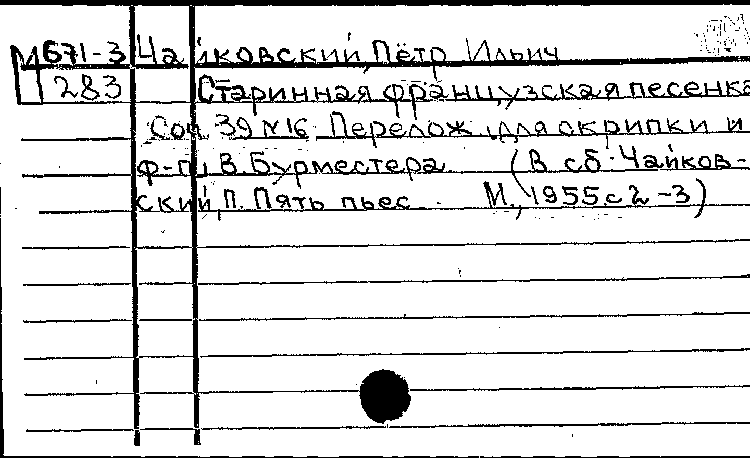 М 671-3 Чайковский, Пётр Ильич
283 Старинная французская песенка
Соч. 39 №16. Перелож. для скрипки и
ф-п. В. Бурместера (В сб: Чайков-
ский, П. Пять пьес. М., 1955. с 2-3)